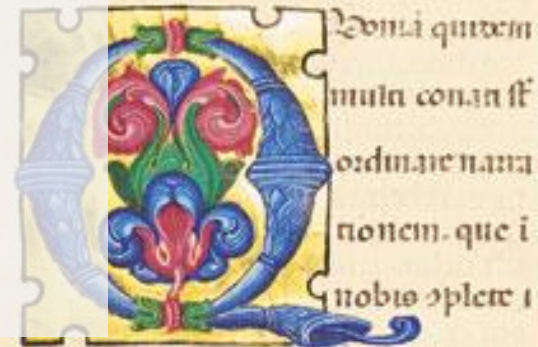 Qoniã quidem
multi conati st̃
ordinare narra
tionem. que i
nobis ꝯplete